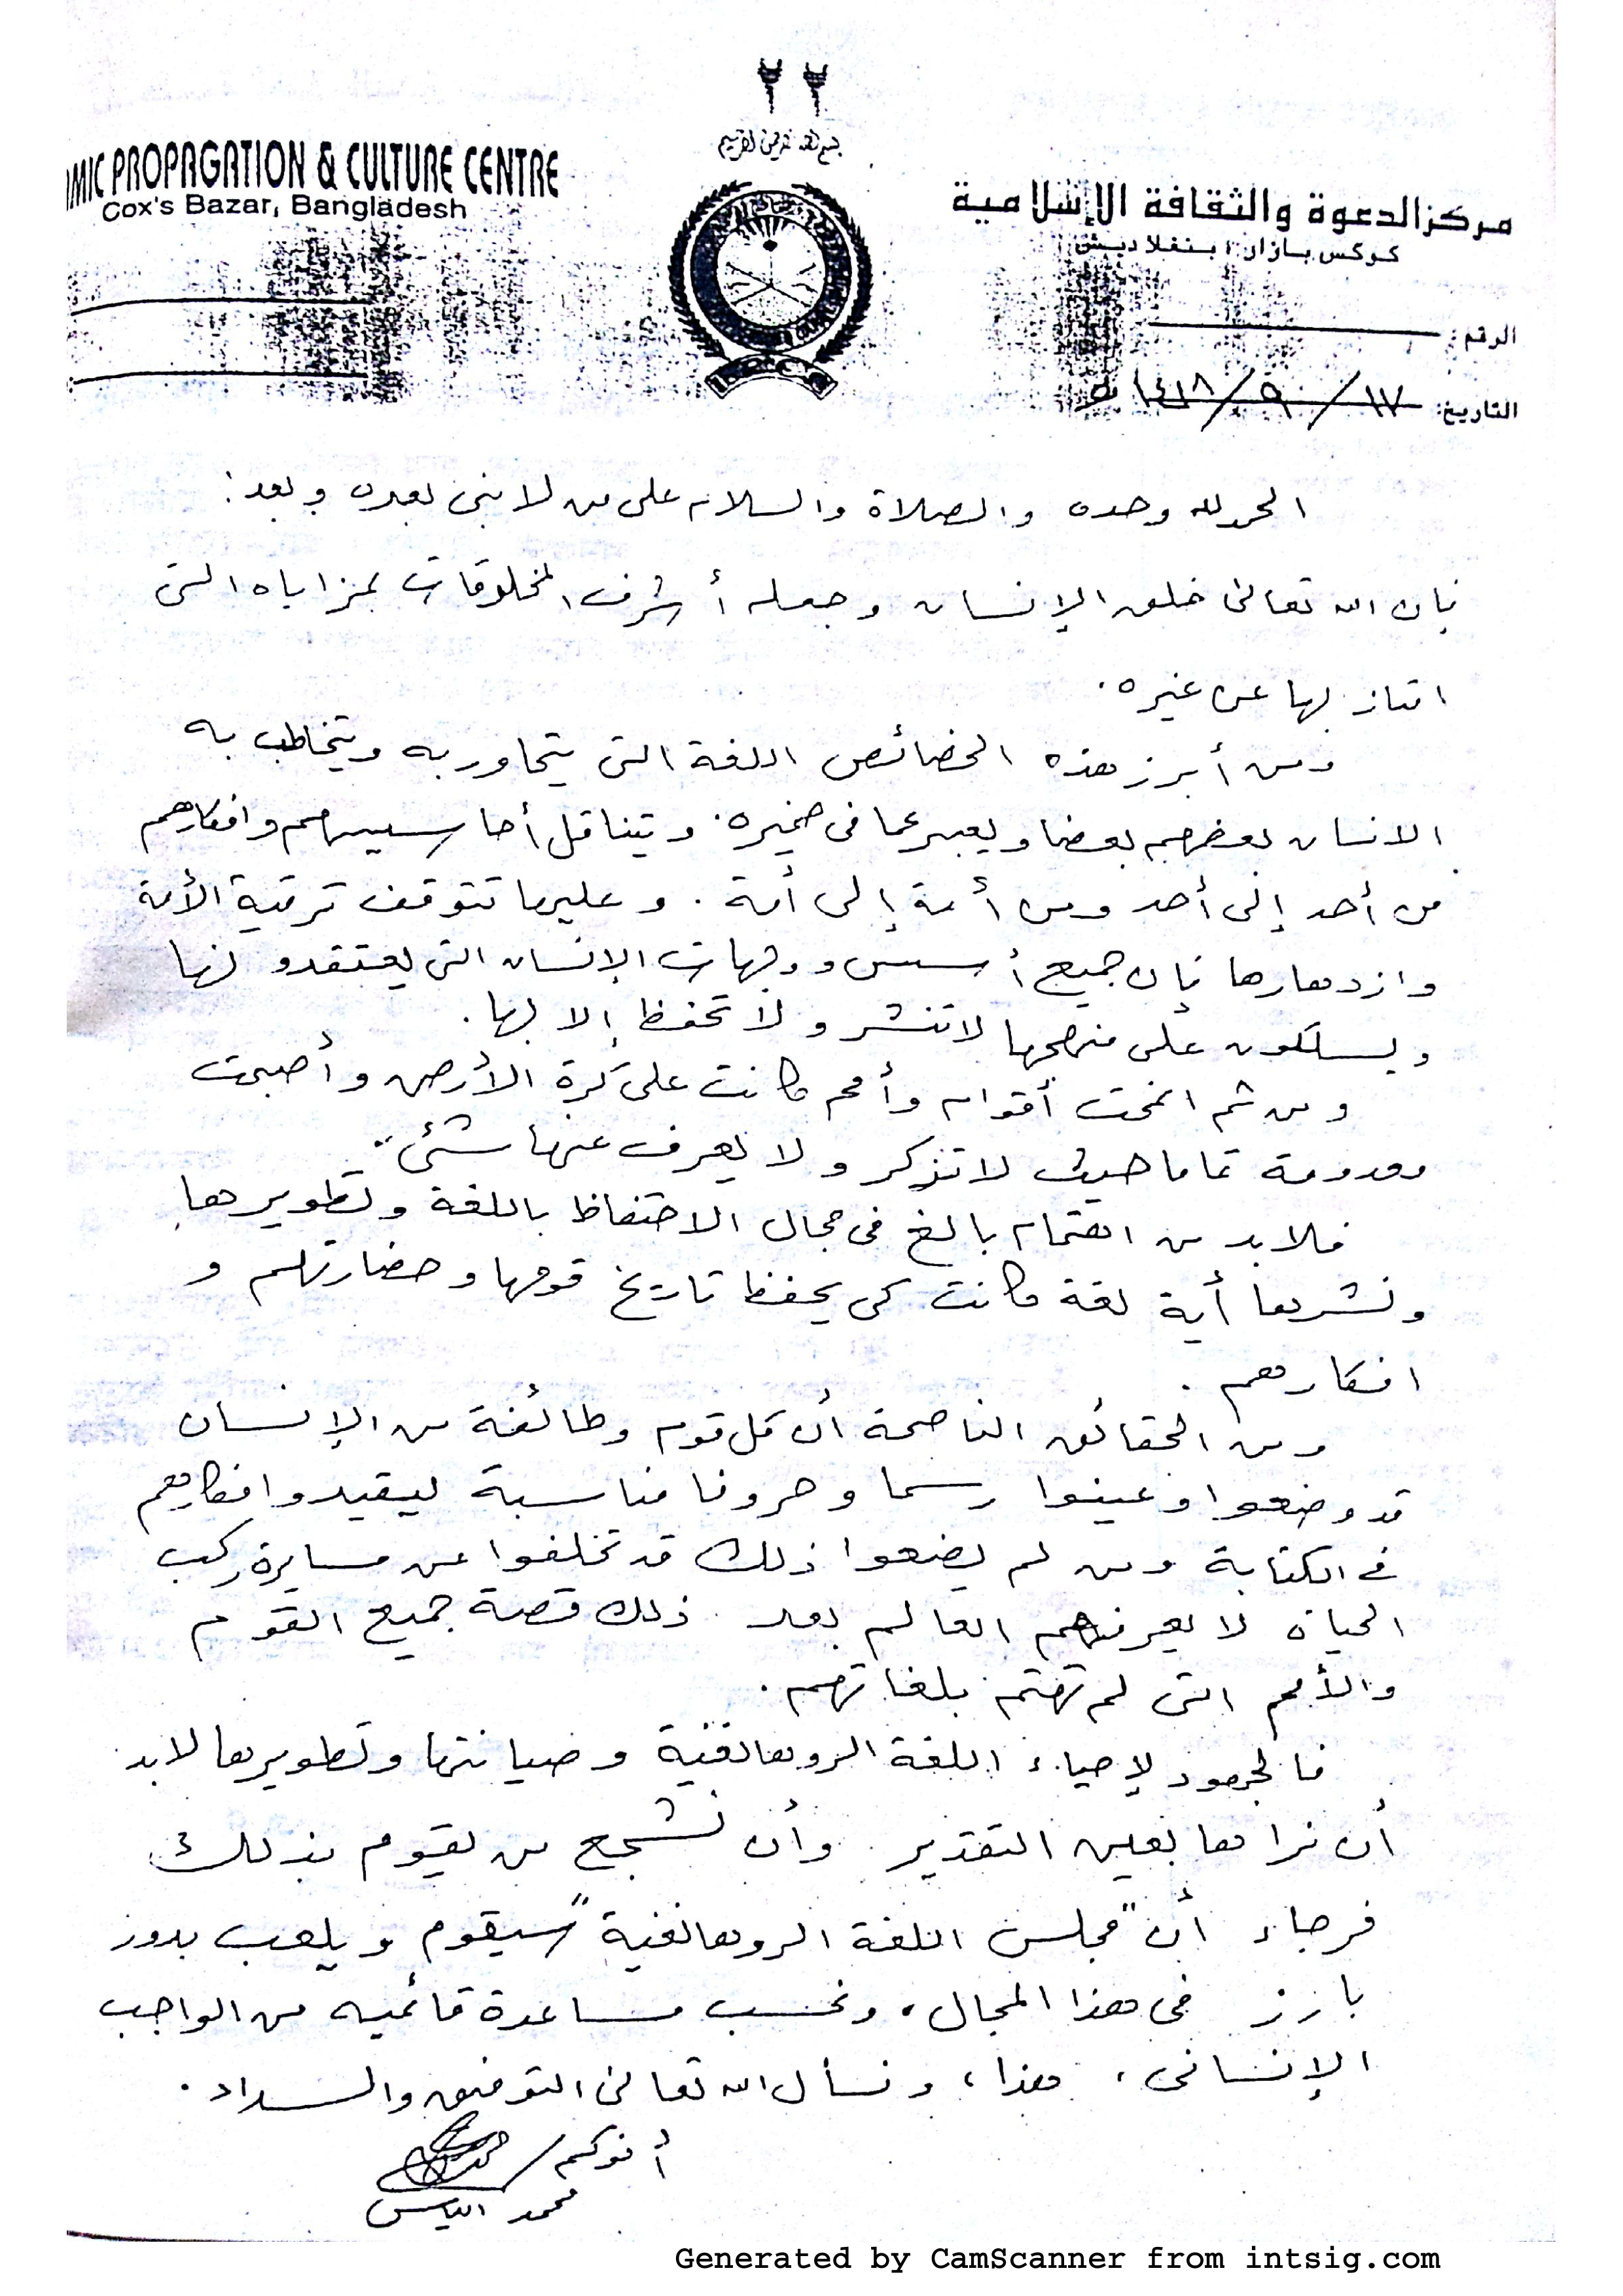 ٢٢
بسم الله الرحمن الرحيم
MIC PROPAGATION & CULTURE CENTRE
Cox's Bazar, Bangladesh
مركز الدعوة والثقافة الإسلامية
كوكس بازار، بنغلاديش
الرقم:
التاريخ: ١٧/٩/١٤١٨ هـ
الحمد لله وحده والصلاة والسلام على من لا نبى بعده وبعد:
فإن الله تعالى خلق الإنسان وجعله أشرف المخلوقات بمزاياه التى
امتاز بها عن غيره.
ومن أبرز هذه الخصائص اللغة التى يتحاور به ويتخاطب به
الانسان بعضهم بعضا ويعبر عما فى ضميره. وتيناقل أحاسيسهم وافكارهم
من أحد إلى أحد ومن أمة إلى أمة. وعليها تتوقف ترقية الأمة
وازدهارها فإن جميع أسس ووجهات الإنسان التى يعتقدونها
ويسلكون على منهجها لا تنشر ولا تحفظ إلا بها.
ومن ثم انمحت أقوام وأمم كانت على كرة الأرض وأصبحت
معدومة تماما حيث لا تذكر ولا يعرف عنها شئ.
فلا بد من اهتمام بالغ فى مجال الاحتفاظ باللغة وتطويرها
ونشرها أية لغة كانت كى يحفظ تاريخ قومها وحضارتهم و
افكارهم.
ومن الحقائق الناصحة أن كل قوم وطائفة من الإنسان
قد وضعوا وعينوا رسما وحروفا مناسبة ليقيدوا افكارهم
فى الكتابة ومن لم يضعوا ذلك قد تخلفوا عن مسايرة ركب
الحياة لا يعرفهم العالم بعد ذلك قصة جميع القوم
والأمم التى لم تهتم بلغاتهم.
فالجهود لإحياء اللغة الروهانغية وصيانتها وتطويرها لا بد
أن نراها بعين التقدير وأن نشجع من يقوم بذلك
فرجاء أن "مجلس اللغة الروهانغية" سيقوم ويلعب بدور
بارز فى هذا المجال، ونحسب مساعدة قائميه من الواجب
الإنسانى، هذا، ونسأل الله تعالى التوفيق والسداد.
أخوكم/
محمد الياس
Generated by CamScanner from intsig.com